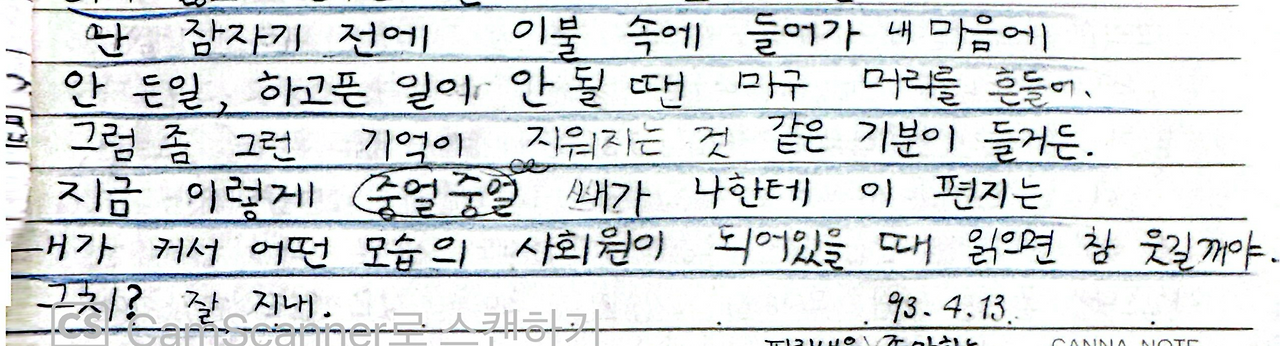 난 잠자기 전에 이불 속에 들어가 내 마음에
안 든일, 하고픈 일이 안 될 땐 마구 머리를 흔들어.
그럼 좀 그런 기억이 지워지는 것 같은 기분이 들거든.
지금 이렇게 중얼중얼 내가 나한테 이 편지는
내가 커서 어떤 모습의 사회원이 되어있을 때 읽으면 참 웃길꺼야.
그치? 잘 지내. 93. 4. 13.
CS CamScanner로 스캔하기
CANNA NOTE